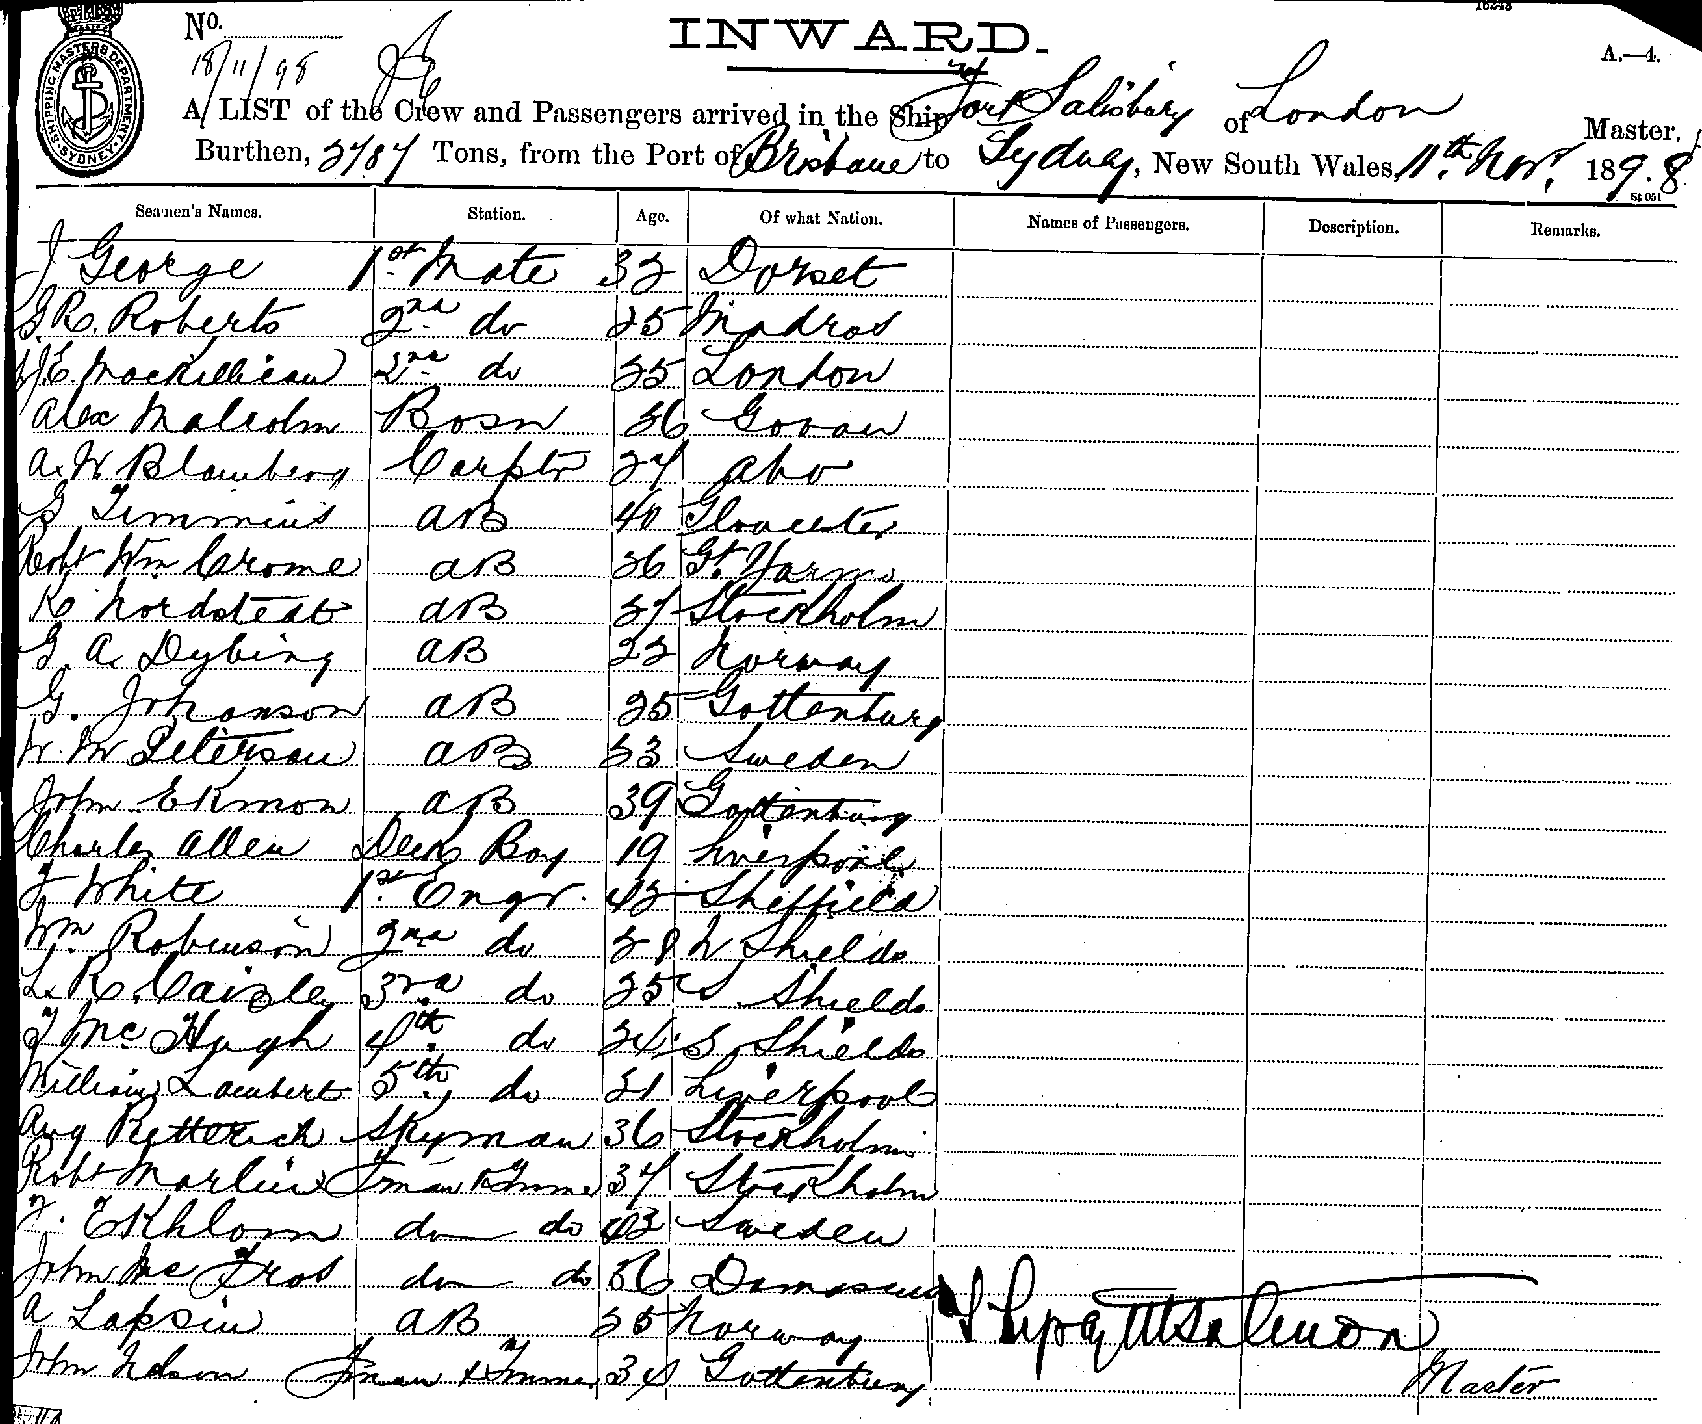 No.
INWARD.
A.—4.
18/11/98
SHIPPING MASTERS DEPARTMENT SYDNEY
A LIST of the Crew and Passengers arrived in the Ship Port Salisbury of London Master,
Burthen, 2787 Tons, from the Port of Brisbane to Sydney, New South Wales, 11th Novr. 1898
Seamen's Names. Station. Age. Of what Nation. Names of Passengers. Description. Remarks.
J George 1st Mate 32 Dorset
G R. Roberts 2nd do 25 Madras
J E. Mackillican 2nd do 25 London
Alex Malcolm Bosn 36 Govan
A. W Blomberg Carptr 27 Abo
Timmins AB 40 Gloucester
Robt Wm Crome AB 26 Gt. Yarmo
K Nordstedt AB 27 Stockholm
G A Dybing AB 22 Norway
G. Johanson AB 25 Gottenburg
W. M Peterson AB 23 Sweden
John Ekmon AB 39 Gottenburg
Charles Allen Deck Boy 19 Liverpool
T White 1st Engr. 42 Sheffield
Wm Robinson 2nd do 28 N Shields
L. R. Caisley 3rd do 25 S Shields
T McHugh 4th do 24 S Shields
William Lambert 5th do 21 Liverpool
Aug Retterich Stkyman 36 Stockholm
Robt Martin Fman & Tmmer 34 Stockholm
F. Ekhlom do do 43 Sweden
John Mc do do 56 Damascus
A Lapsin AB 25 Norway
John Nelson Fman & Tmmer 34 Gottenburg
Master